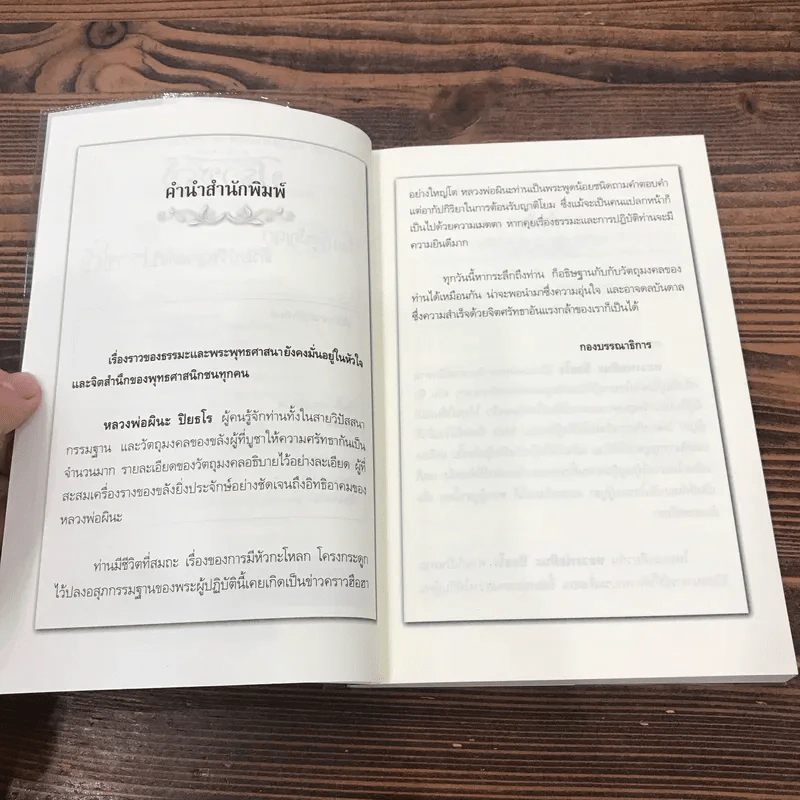 คำนำสำนักพิมพ์
เรื่องราวของธรรมะและพระพุทธศาสนายังคงมั่นอยู่ในหัวใจ
และจิตสำนึกของพุทธศาสนิกชนทุกคน
หลวงพ่อผินะ ปิยธโร ผู้คนรู้จักท่านทั้งในสายวิปัสสนา
กรรมฐาน และวัตถุมงคลของขลังผู้ที่บูชาให้ความศรัทธากันเป็น
จำนวนมาก รายละเอียดของวัตถุมงคลอธิบายไว้อย่างละเอียด ผู้ที่
สะสมเครื่องรางของขลังยิ่งประจักษ์อย่างชัดเจนถึงอิทธิอาคมของ
หลวงพ่อผินะ
ท่านมีชีวิตที่สมถะ เรื่องของการมีหัวกะโหลก โครงกระดูก
ไว้ปลงอสุภกรรมฐานของพระผู้ปฏิบัตินี้เคยเกิดเป็นข่าวคราวฮือฮา
อย่างใหญ่โต หลวงพ่อผินะท่านเป็นพระพูดน้อยชนิดถามคำตอบคำ
แต่อากัปกิริยาในการต้อนรับญาติโยม ซึ่งแม้จะเป็นคนแปลกหน้าก็
เป็นไปด้วยความเมตตา หากคุยเรื่องธรรมะและการปฏิบัติท่านจะมี
ความยินดีมาก
ทุกวันนี้หากระลึกถึงท่าน ก็อธิษฐานกับกับวัตถุมงคลของ
ท่านได้เหมือนกัน น่าจะพอนำมาซึ่งความอุ่นใจ และอาจดลบันดาล
ซึ่งความสำเร็จด้วยจิตศรัทธาอันแรงกล้าของเราก็เป็นได้
กองบรรณาธิการ